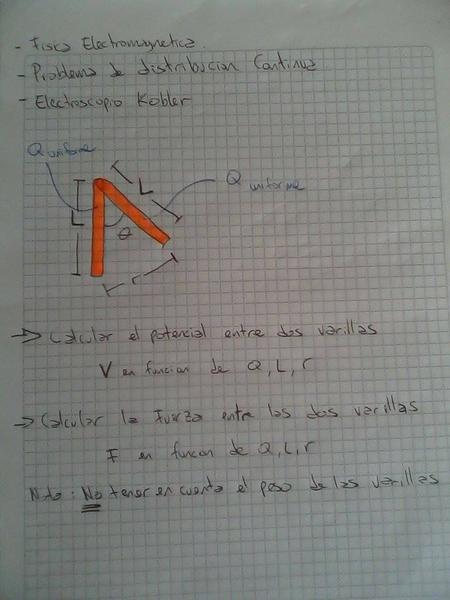 - Fisica Electromagnetica.
- Problema de distribucion Continua
- Electroscopio Kobler
Q uniforme
L
Q uniforme
L
θ
r
→ Calcular el potencial entre dos varillas
V en funcion de Q, L, r
→ Calcular la Fuerza entre las dos varillas
F en funcon de Q, L, r
Nota: No tener en cuenta el peso de las varillas